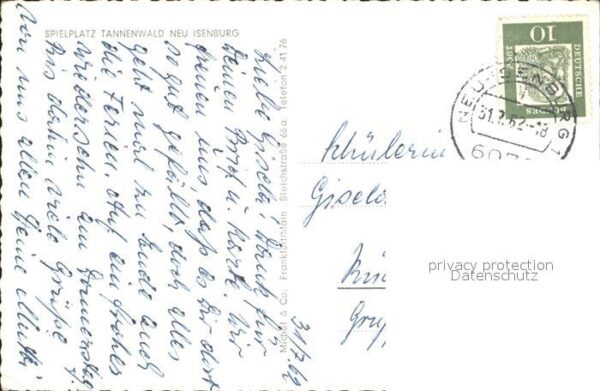 SPIELPLATZ TANNENWALD NEU ISENBURG
31/7 62
Liebe Gisela! Dank für
Deinen Brief u. Karte. Wir
freuen uns daß es Dir dort
so gut gefällt, doch alles
geht mal zu Ende auch
die Ferien. Auf ein frohes
Wiedersehn am Donnerstag
bis dahin viele Grüße
von uns allen Deine Mutti.
Michel & Co. Frankfurt-Main Bleichstraße 66a Telefon 2 41 76
Schülerin
Gisela
privacy protection
Datenschutz
DEUTSCHE
BUNDESPOST
10
NEU-ISENBURG 1
31.7.62-18
6078